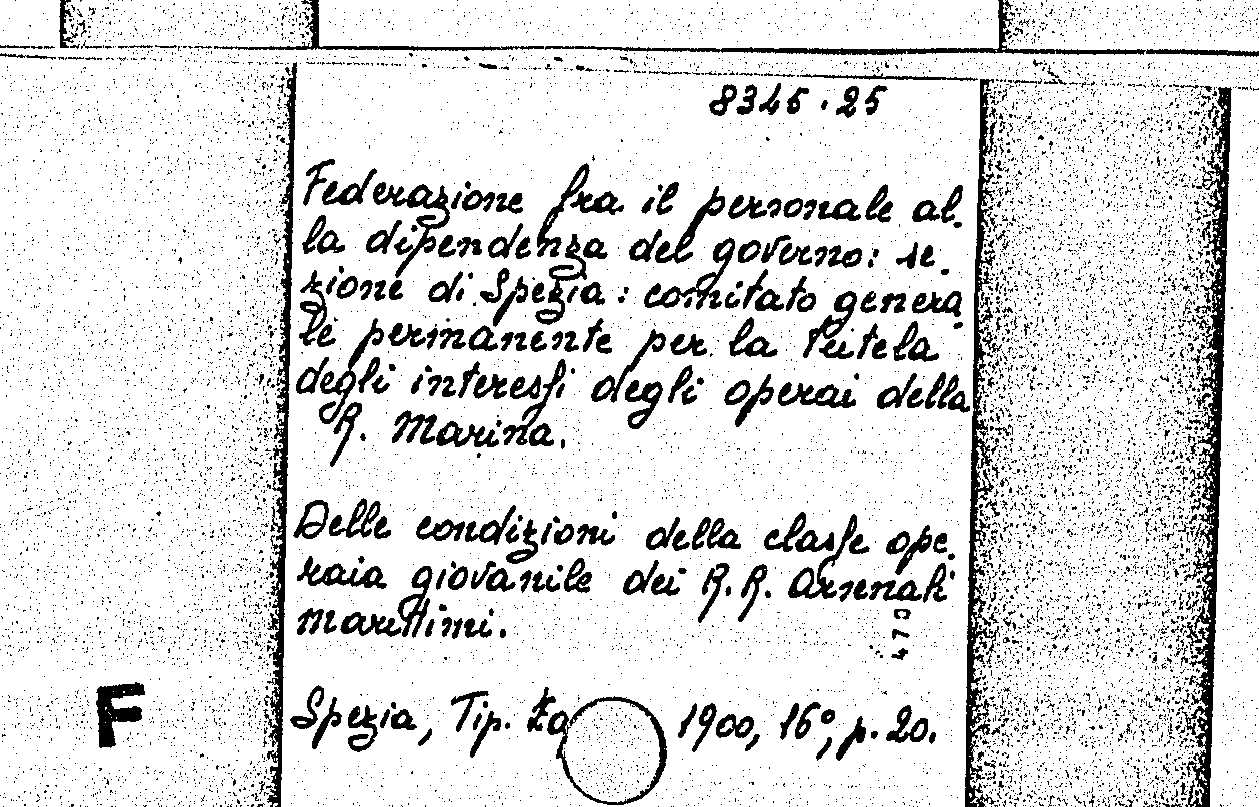 8345.25
Federazione fra il personale al-
la dipendenza del governo: se-
zione di Spezia: comitato genera-
le permanente per la tutela
degli interessi degli operai della
R. Marina.
Delle condizioni della classe ope-
raia giovanile dei R.R. Arsenali
marittimi.
470
F
Spezia, Tip. 1900, 16°, p. 20.